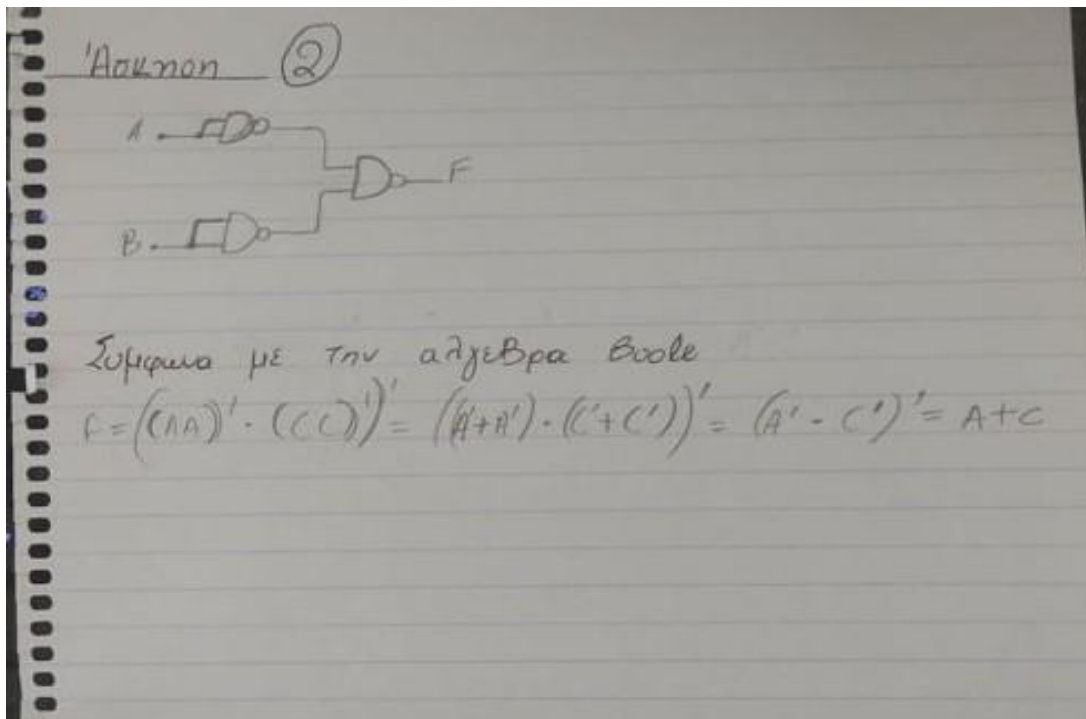 Άσκηση 2
A
F
B
Σύμφωνα με την αλγεβρα Boole
F = ((AA)' · (CC)')' = ((A'+A') · (C'+C'))' = (A' · C')' = A+C